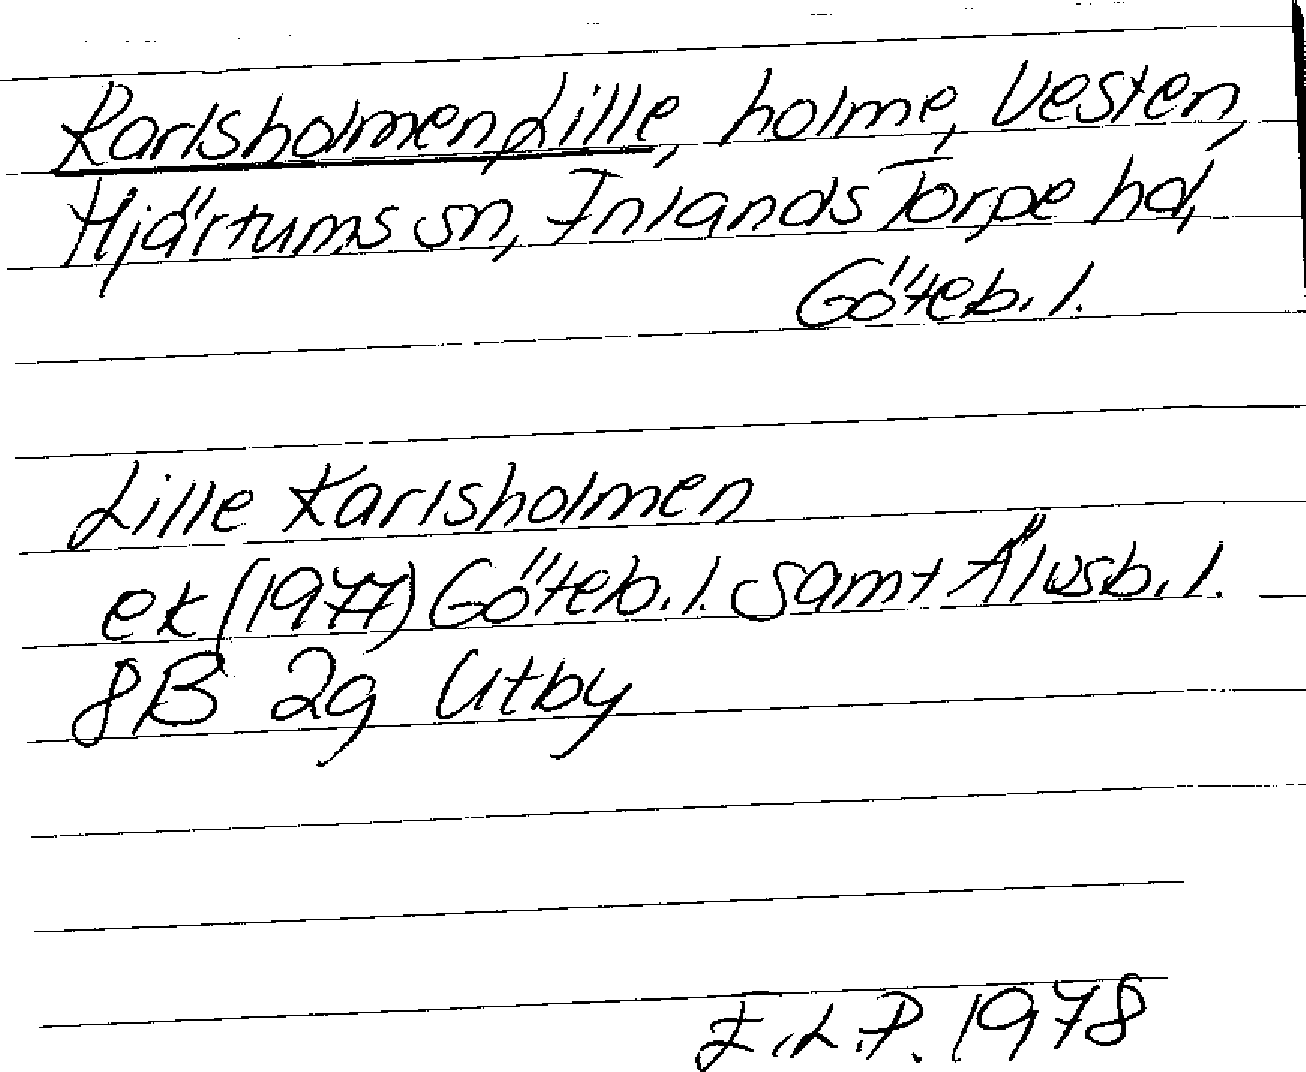 Karlsholmen, Lille, holme, Vesten,
Hjärtums sn, Inlands Torpe hd,
Göteb. l.
Lille Karlsholmen
ek (1977) Göteb. l. samt Älvsb. l.
8B 2g Utby
E.L.P. 1978